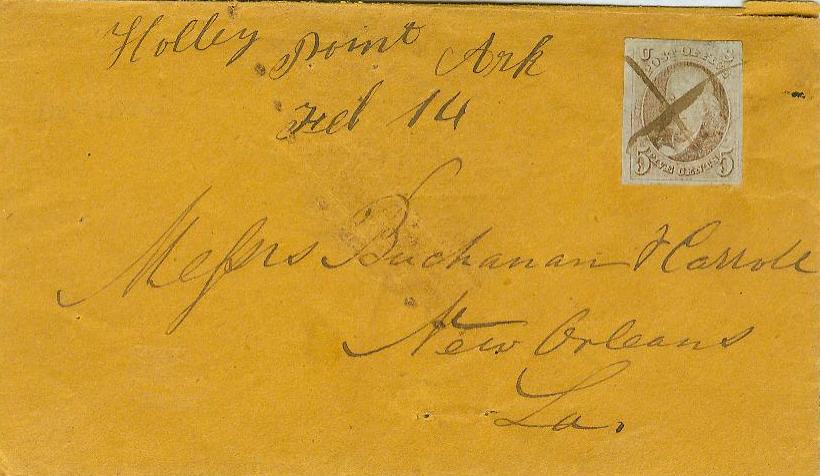 Holley Point Ark
Feb 14
U S
POST OFFICE
5 FIVE CENTS 5
Messrs Buchanan & Carroll
New Orleans
La.